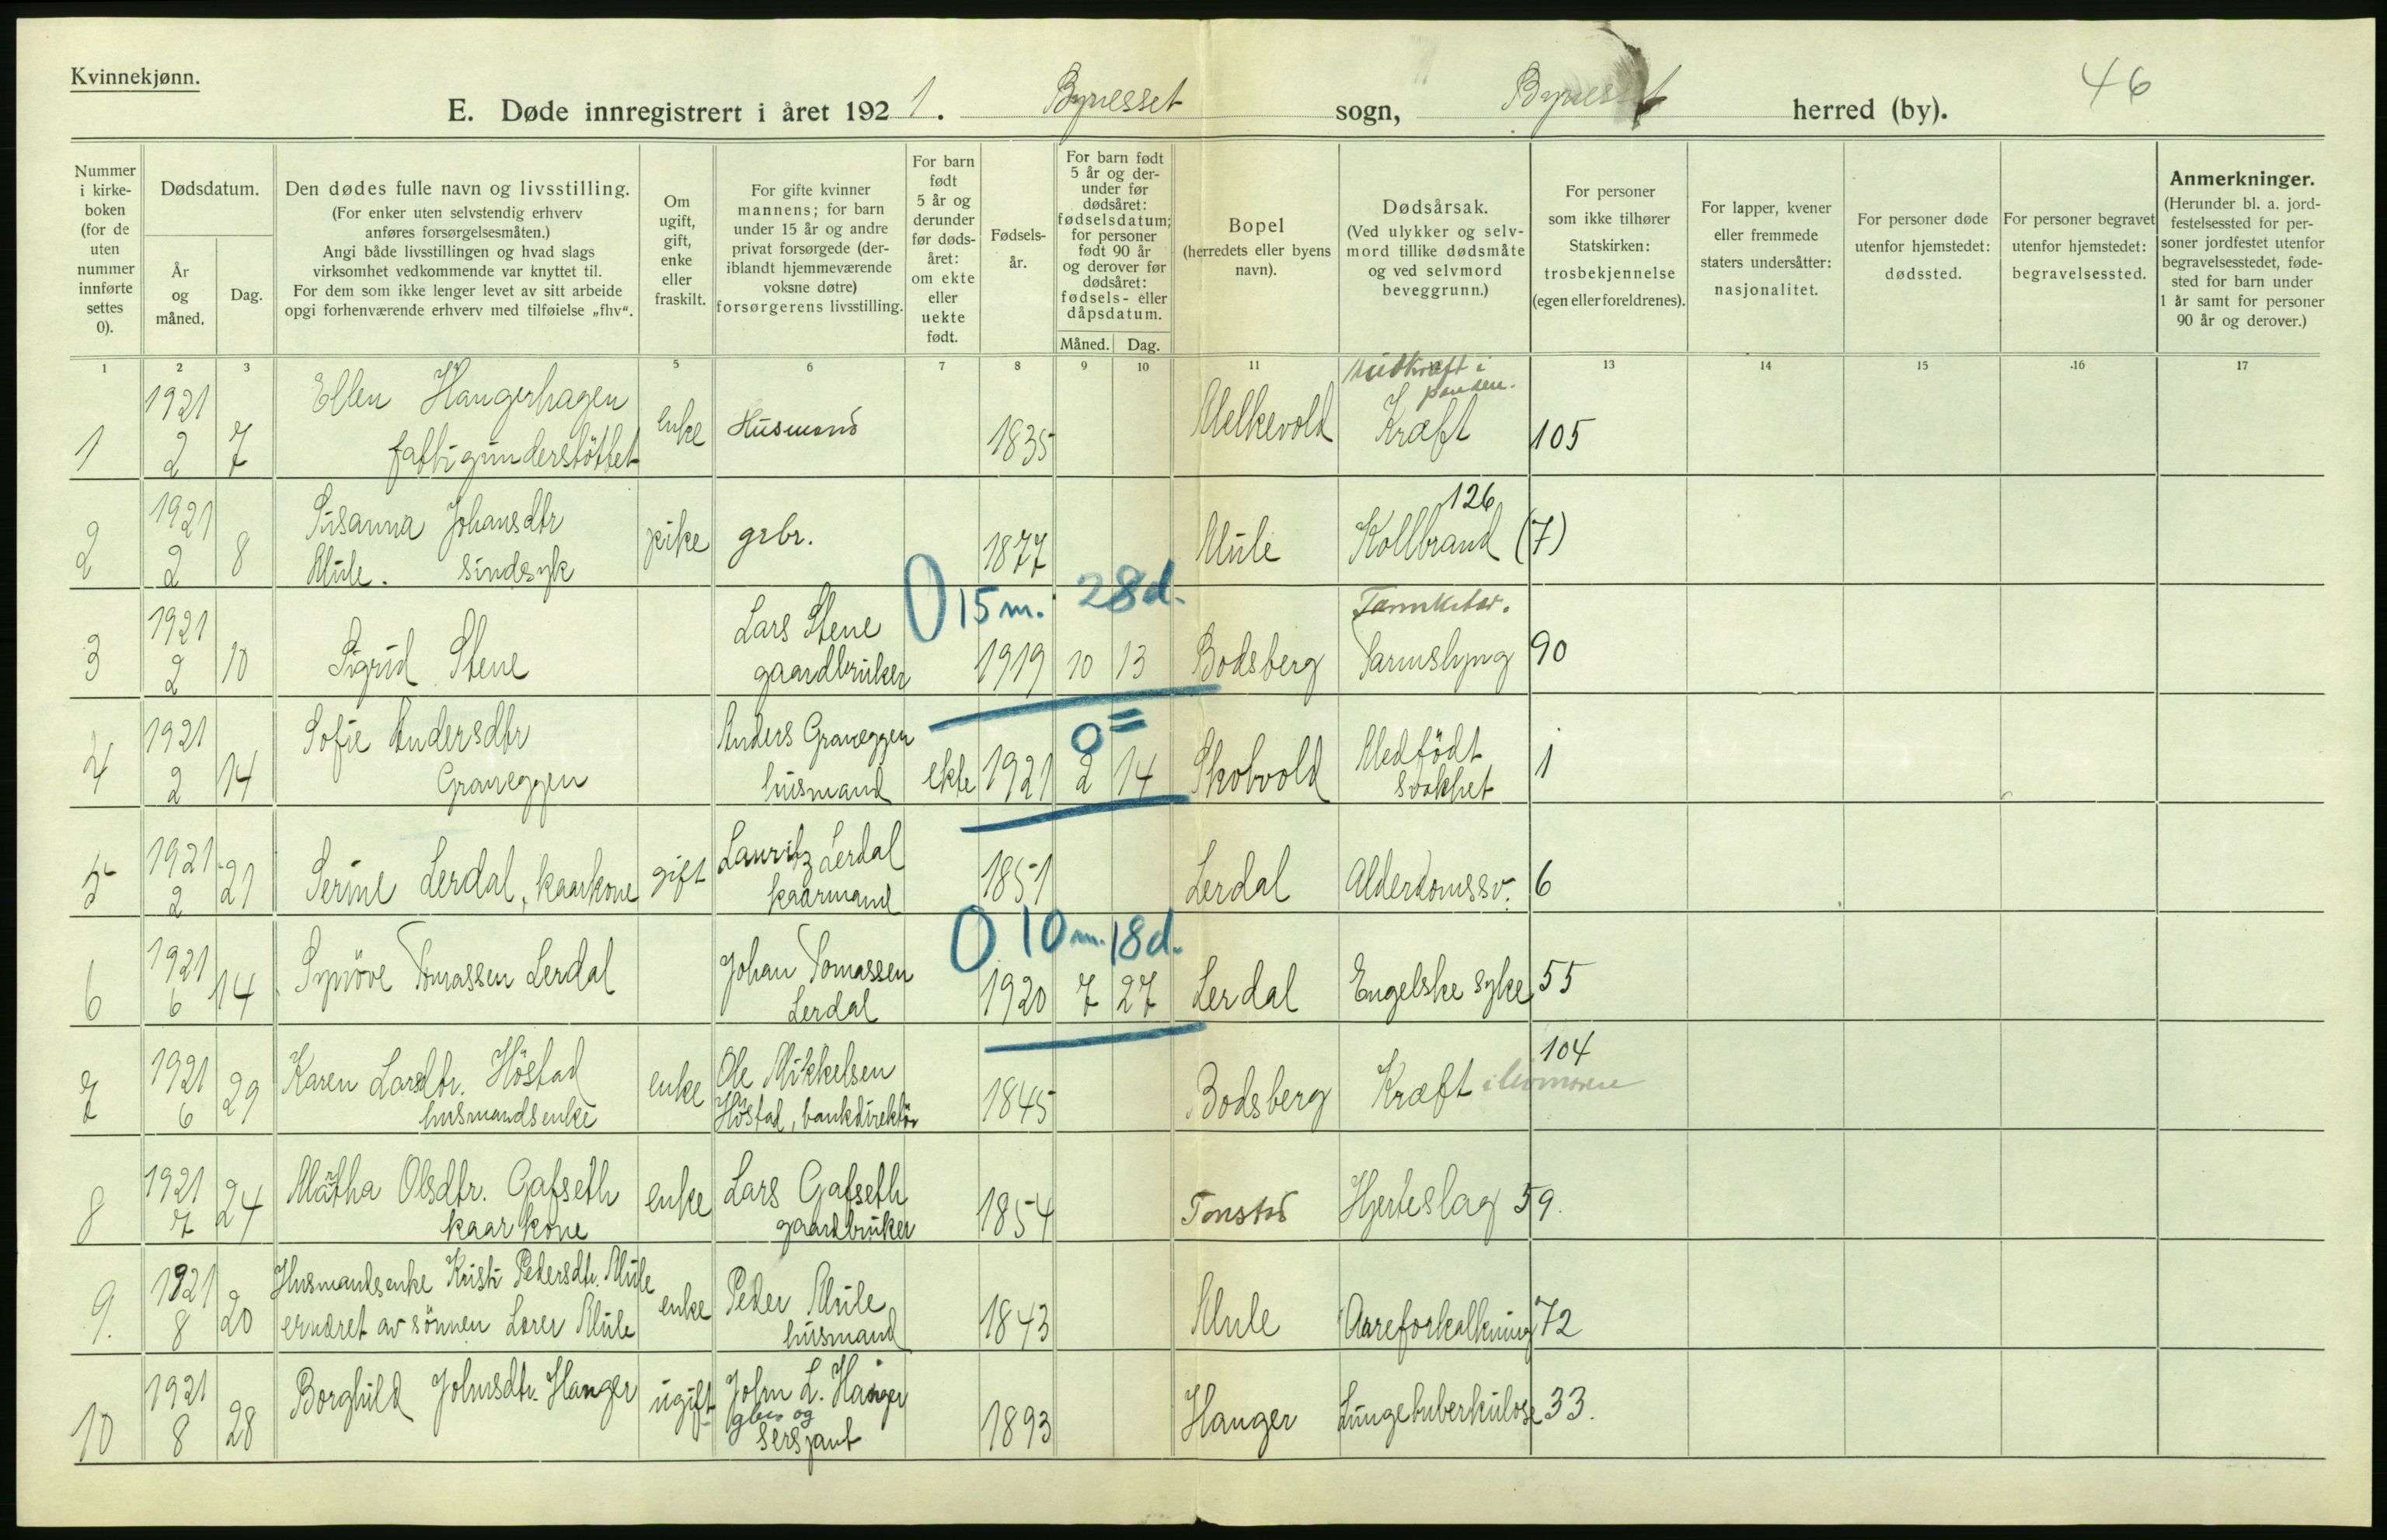 Kvinnekjønn.
46
E. Døde innregistrert i året 1921. Bynesset sogn, Bynesset herred (by).
Nummer i kirke-boken (for de uten nummer innførte settes 0).
Dødsdatum.
År og måned.
Dag.
Den dødes fulle navn og livsstilling.
(For enker uten selvstendig erhverv anføres forsørgelsesmåten.)
Angi både livsstillingen og hvad slags virksomhet vedkommende var knyttet til.
For dem som ikke lenger levet av sitt arbeide opgi forhenværende erhverv med tilføielse „fhv“.
Om ugift, gift, enke eller fraskilt.
For gifte kvinner mannens; for barn under 15 år og andre privat forsørgede (deriblandt hjemmeværende voksne døtre) forsørgerens livsstilling.
For barn født 5 år og derunder før døds-året: om ekte eller uekte født.
Fødsels-år.
For barn født 5 år og der-under før dødsåret: fødselsdatum; for personer født 90 år og derover før dødsåret: fødsels- eller dåpsdatum.
Måned. Dag.
Bopel (herredets eller byens navn).
Dødsårsak. (Ved ulykker og selv-mord tillike dødsmåte og ved selvmord beveggrunn.)
For personer som ikke tilhører Statskirken: trosbekjennelse (egen eller foreldrenes).
For lapper, kvener eller fremmede staters undersåtter: nasjonalitet.
For personer døde utenfor hjemstedet: dødssted.
For personer begravet utenfor hjemstedet: begravelsessted.
Anmerkninger. (Herunder bl. a. jord-festelsessted for per-soner jordfestet utenfor begravelsesstedet, føde-sted for barn under 1 år samt for personer 90 år og derover.)
1 2 3 5 6 7 8 9 10 11 13 14 15 16 17
1 1921 2 7 Ellen Hangerhagen fattigunderstöttet enke Husmand 1835 Melkevold Hudkræft i panden. Kræft 105
2 1921 2 8 Susanna Johansdtr Mule. sindsyk pike grbr. 1877 Mule Kollbrand 126 (7)
0 15 m. 28 d.
3 1921 2 10 Sigrid Stene Lars Stene gaardbruker 1919 10 13 Bodsberg Tarmslyng 90
0 =
4 1921 2 14 Sofie Andersdtr Graneggen Anders Graneggen husmand ekte 1921 2 14 Skotvold Medfödt svakhet 1
5 1921 2 21 Serine Lerdal, kaarkone gift Lauritz Lerdal kaarmand 1851 Lerdal Alderdomssv. 6
0 10 m. 18 d.
6 1921 6 14 Synöve Tomassen Lerdal Johan Tomassen Lerdal 1920 7 27 Lerdal Engelske syke 55
7 1921 6 29 Karen Larsdtr. Höstad husmandsenke enke Ole Mikkelsen Höstad, bankdirektör 1845 Bodsberg Kræft 104
8 1921 7 24 Martha Olsdtr. Gafseth kaarkone enke Lars Gafseth gaardbruker 1854 Tonstad Hjerteslag 59.
9. 1921 8 20 Husmandsenke Kristi Pedersdtr. Mule ernæret av sönnen Lorer Mule enke Peder Mule husmand 1843 Mule Aareforkalkning 72
10 1921 8 28 Borghild Johnsdtr. Hanger ugift John L. Hanger gbr. og sersjant 1893 Hanger Lungetuberkulose 33.